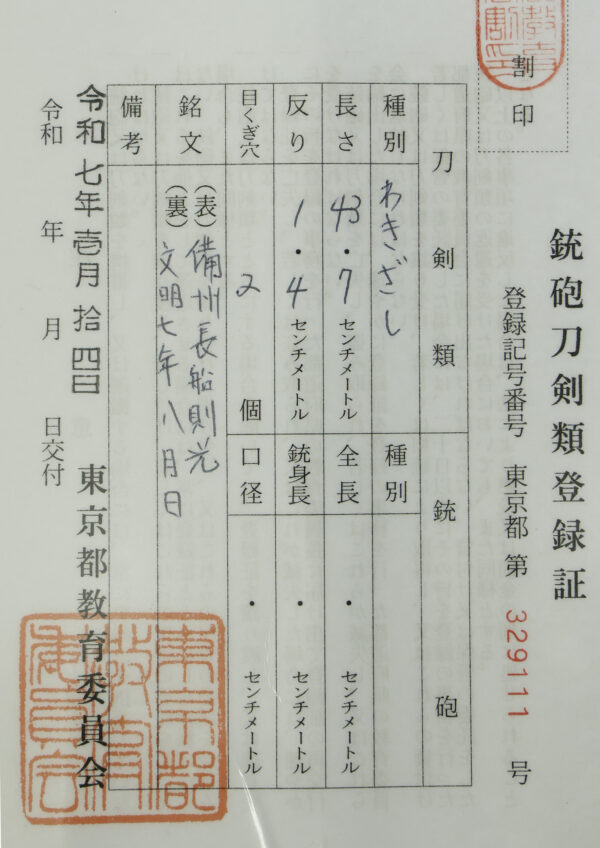 割印
銃砲刀剣類登録証
登録記号番号 東京都 第 329111 号
刀剣類
銃砲
種別 わきざし
種別
長さ 43・7 センチメートル
全長 ・ センチメートル
反り 1・4 センチメートル
銃身長 ・ センチメートル
目くぎ穴 2 個
口径 ・ センチメートル
銘文
(表) 備州長船則光
(裏) 文明七年八月日
備考
令和七年壱月拾四日
令和 年 月 日交付
東京都教育委員会
東京都
教育
委員会